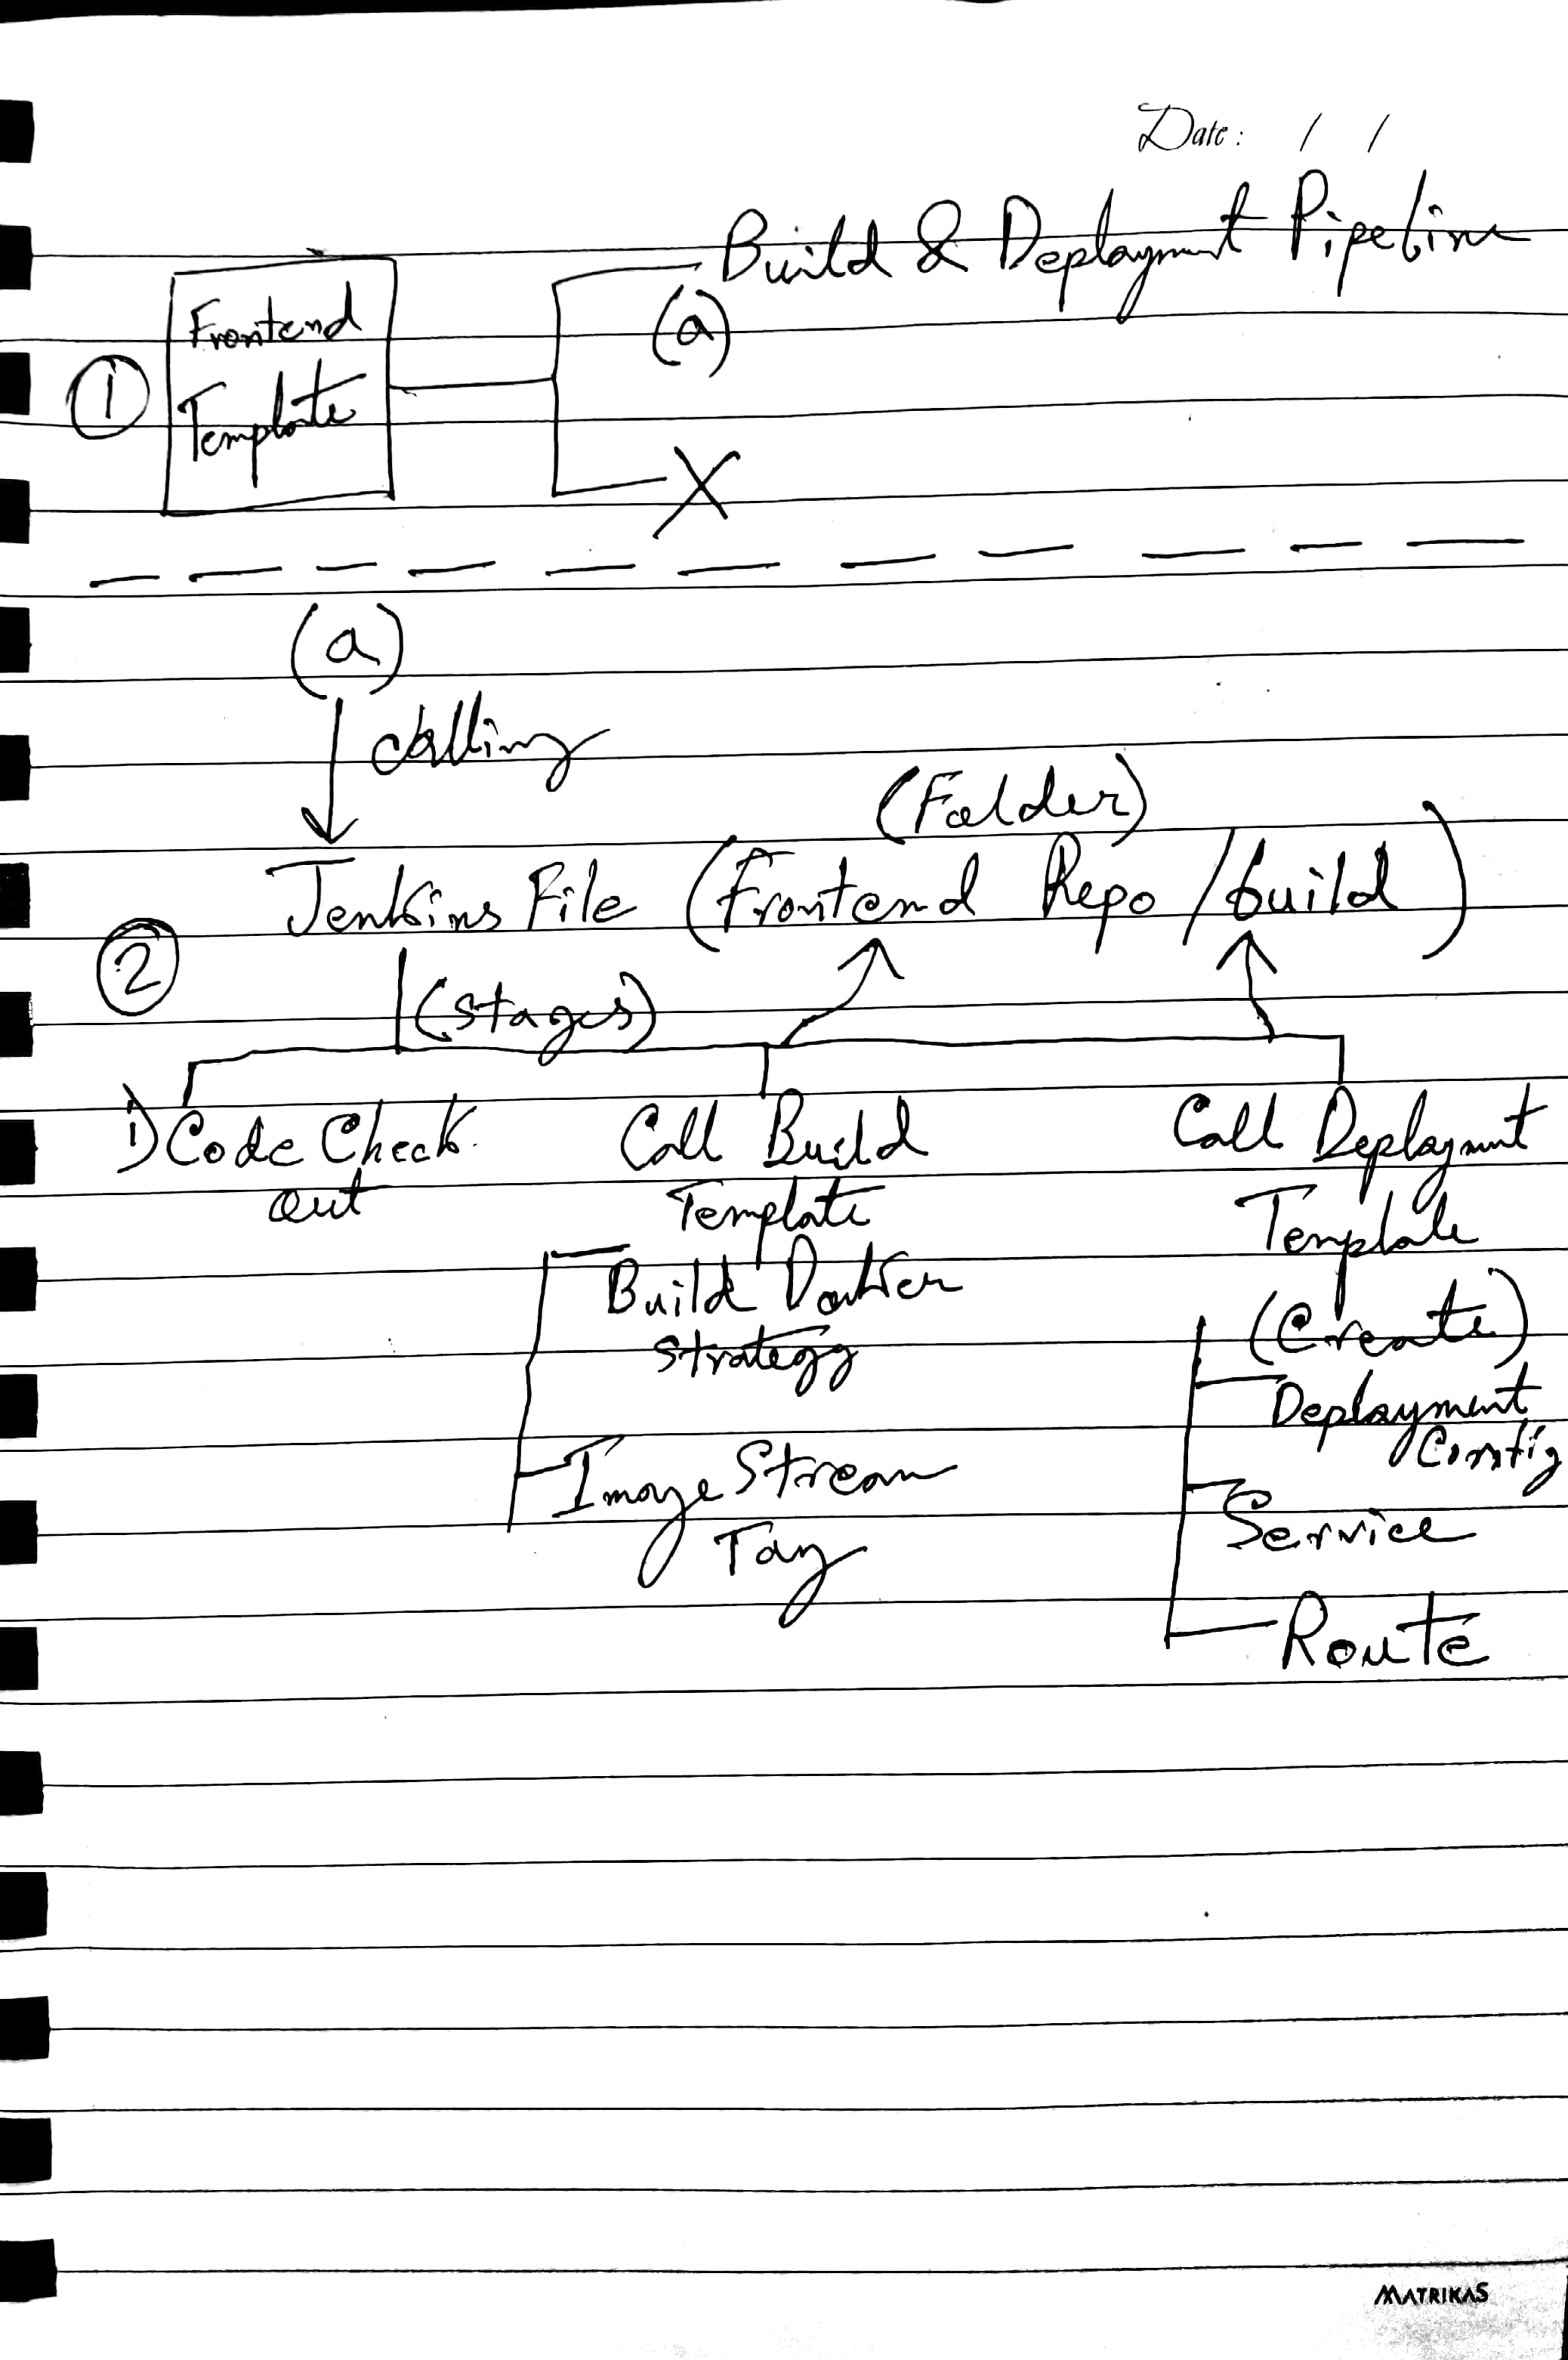 Date: / /
Build & Deployment Pipeline
(a)
Frontend
Template
1
X
(a)
calling
(Folder)
Jenkins File (Frontend Repo / build)
2
(stages)
1) Code Check out
Call Build Template
Build Docker strategy
Image Stream Tag
Call Deployment Template
(Create)
Deployment Config
Service
Route
MATRIKAS